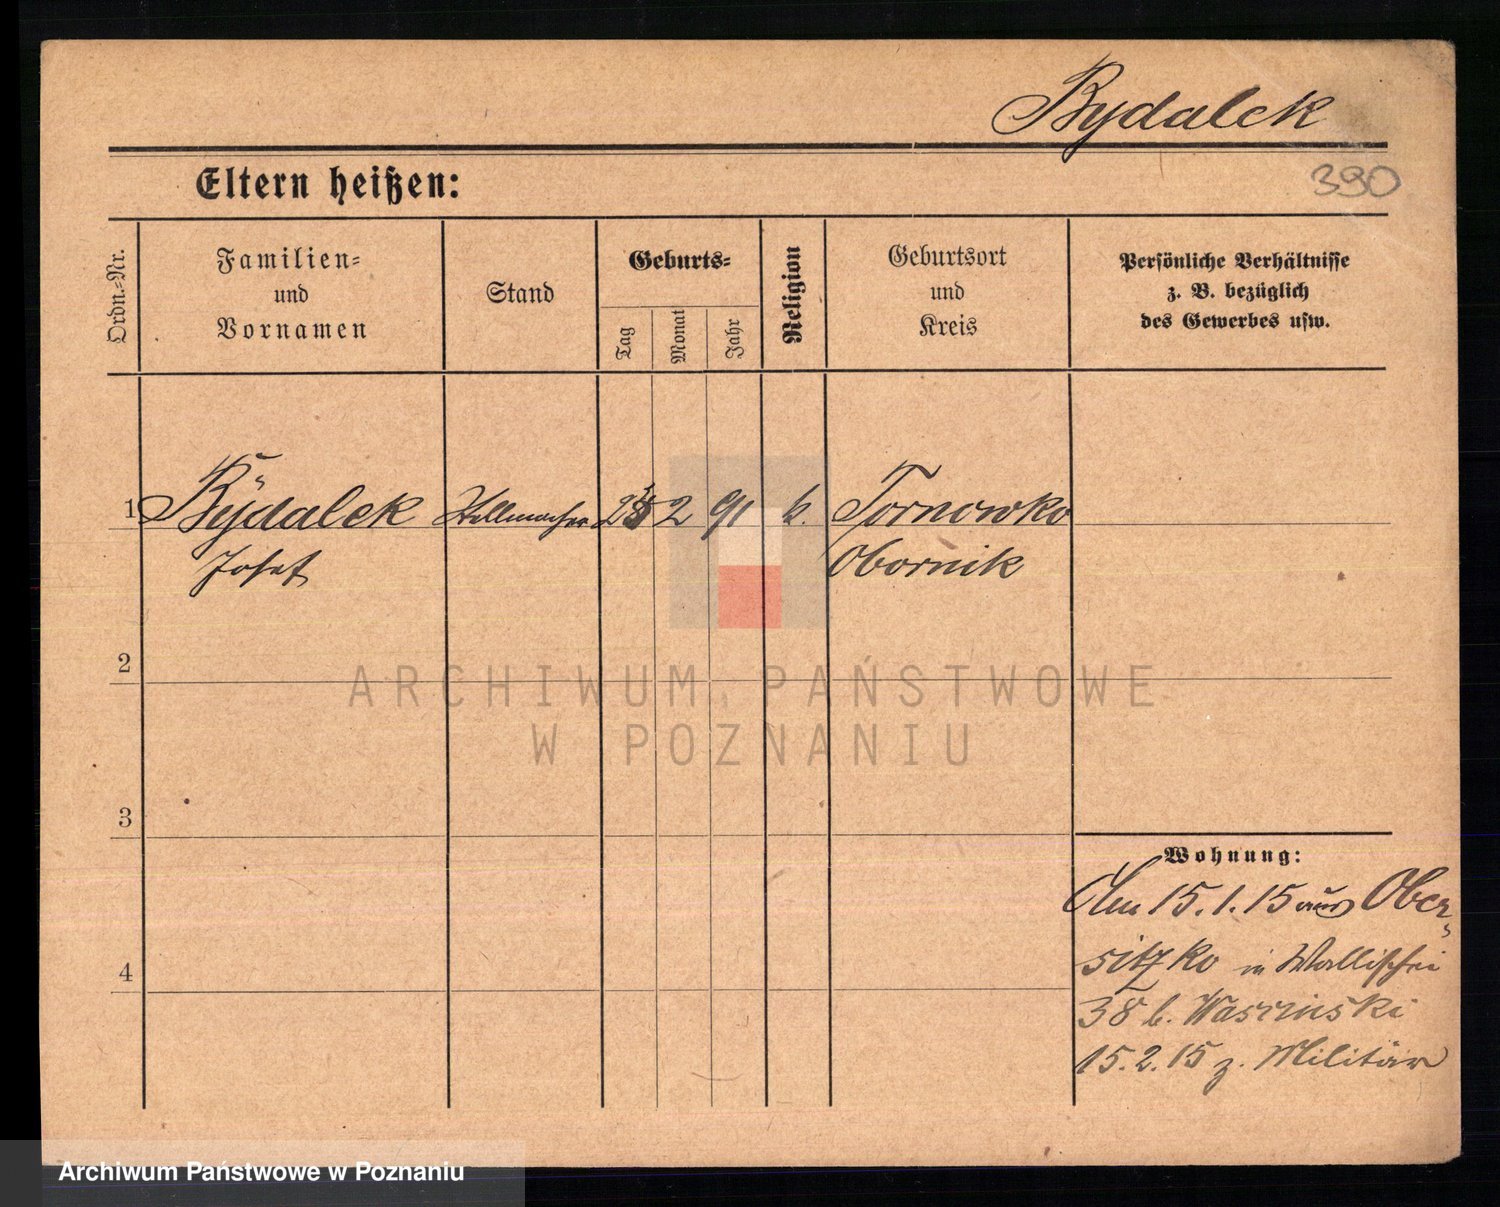 Rydalek
390
Eltern heißen:
Ordn.-Nr.
Familien-
und
Vornamen
Stand
Geburts-
Tag
Monat
Jahr
Religion
Geburtsort
und
Kreis
Persönliche Verhältnisse
z. B. bezüglich
des Gewerbes usw.
1 Rydalek Stellmacher 2 91 k. Tornowko
Josef Obornik
2
3
4
Wohnung:
Am 15.1.15 aus Ober-
sitzko in Wallischei
38 b. Waszinski
15.2.15 z. Militär
ARCHIWUM PAŃSTWOWE
W POZNANIU
Archiwum Państwowe w Poznaniu